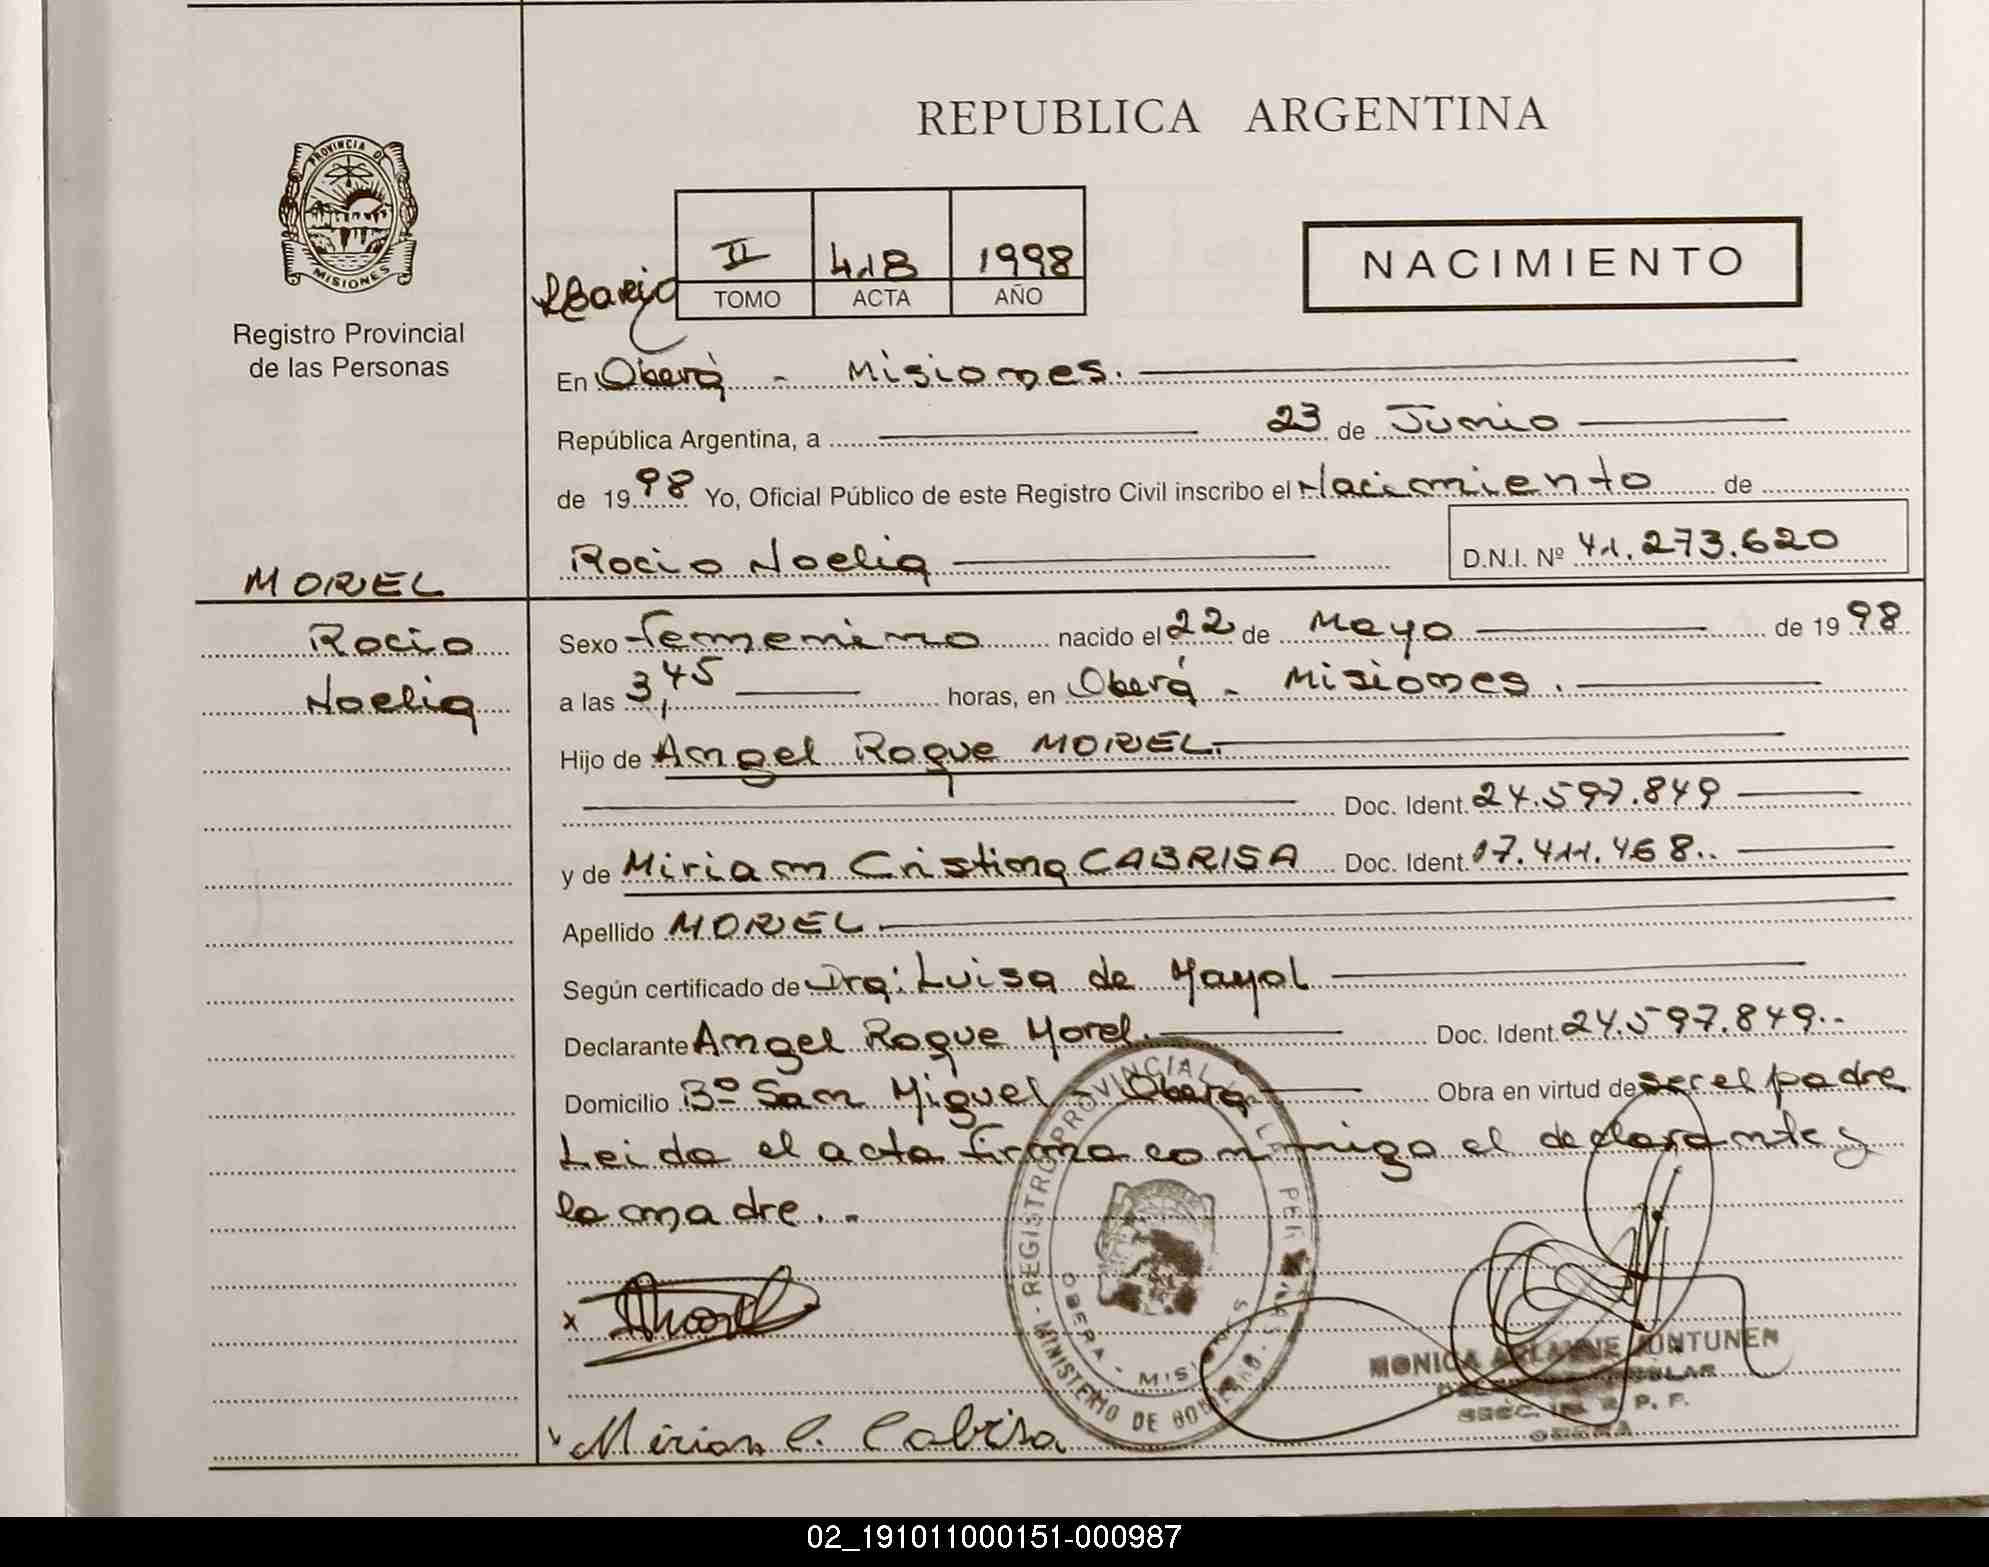 REPUBLICA ARGENTINA
PROVINCIA DE
MISIONES
Registro Provincial
de las Personas
II 418 1998
TOMO ACTA AÑO
NACIMIENTO
En Oberá - Misiones.
República Argentina, a 23 de Junio
de 1998 Yo, Oficial Público de este Registro Civil inscribo el Nacimiento de
Rocio Noelia D.N.I. Nº 41.273.620
MOREL
Rocio
Noelia
Sexo Femenino nacido el 22 de Mayo de 1998
a las 3,45 horas, en Oberá - Misiones.
Hijo de Angel Roque MOREL.
Doc. Ident. 24.597.849
y de Miriam Cristina CABRISA Doc. Ident. 17.411.468..
Apellido MOREL
Según certificado de Dra: Luisa de Mayol
Declarante Angel Roque Morel. Doc. Ident. 24.597.849..
Domicilio Bº San Miguel - Oberá Obra en virtud de ser el padre
Leida el acta firma conmigo el declarante y
la madre..
x
Mirian C. Cabrisa
REGISTRO PROVINCIAL
MINISTERIO DE GOBIERNO
OBERA - MIS
MONICA JUNTUNEN
OBERA
02_191011000151-000987